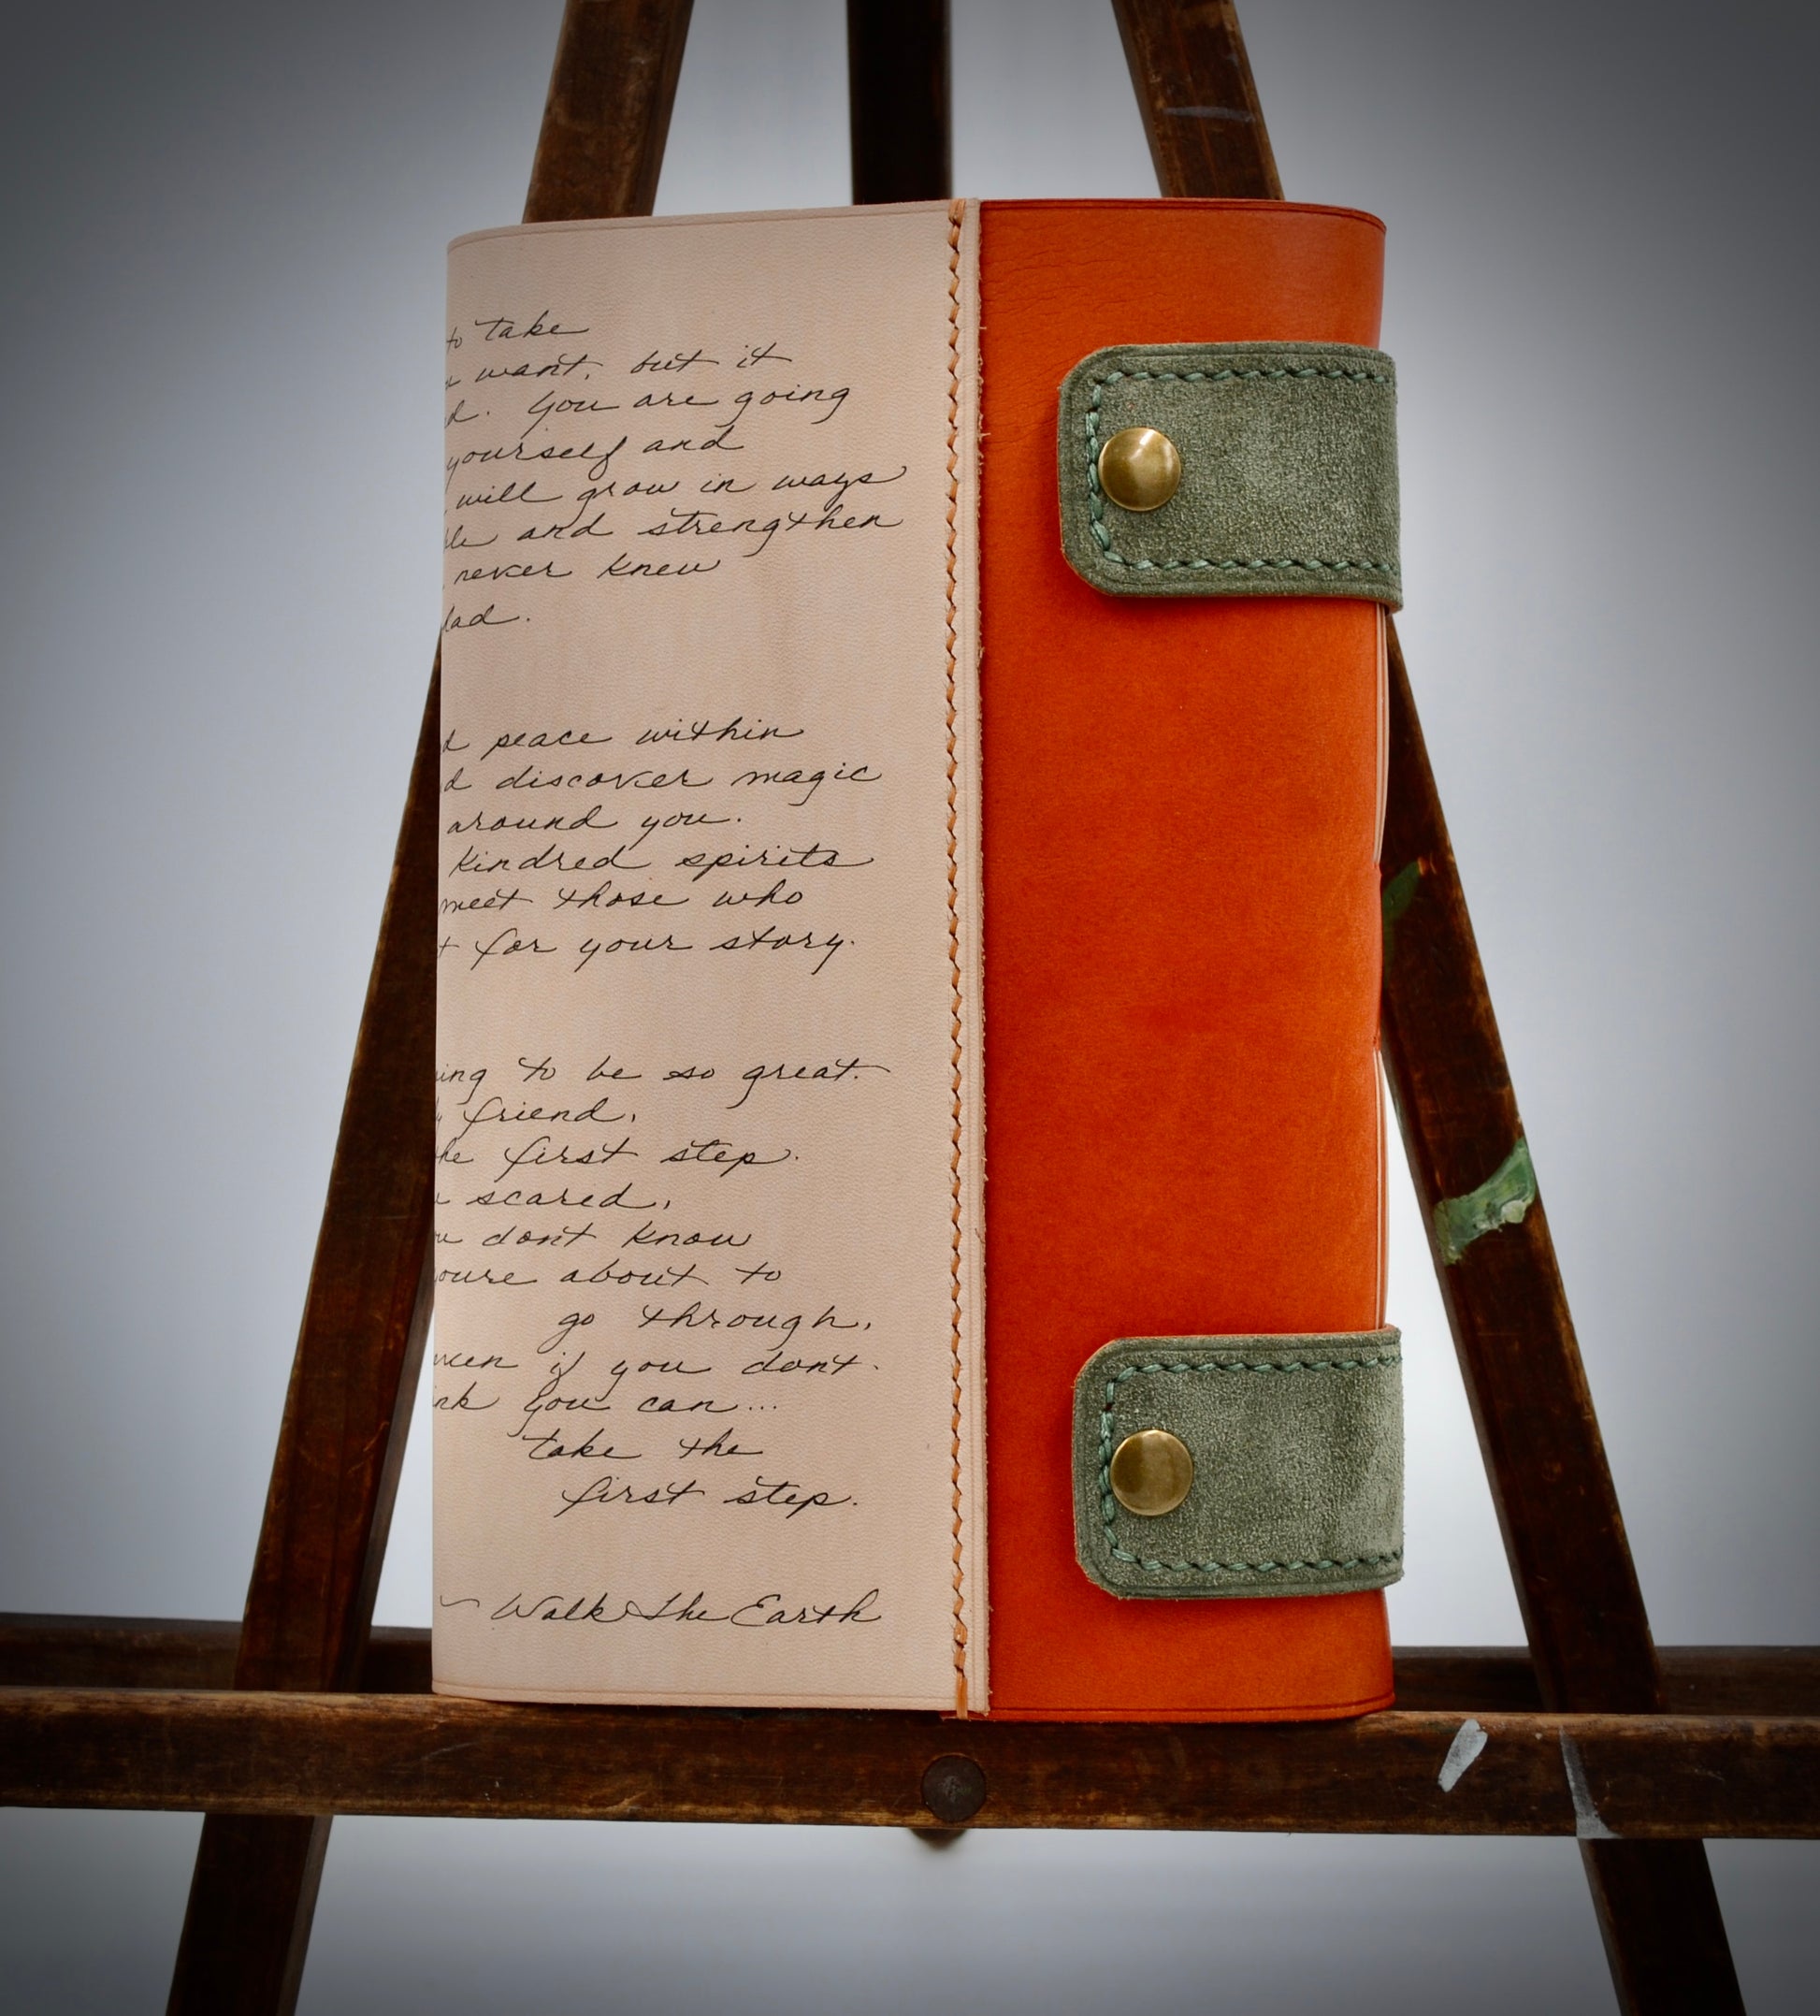 to take
want, but it
d. You are going
yourself and
will grow in ways
le and strengthen
never knew
lad.
d peace within
d discover magic
around you.
kindred spirits
meet those who
t for your story.
ing to be so great.
friend,
he first step.
scared,
u dont know
oure about to
go through,
ven if you dont.
nk you can...
take the
first step.
~ Walk The Earth